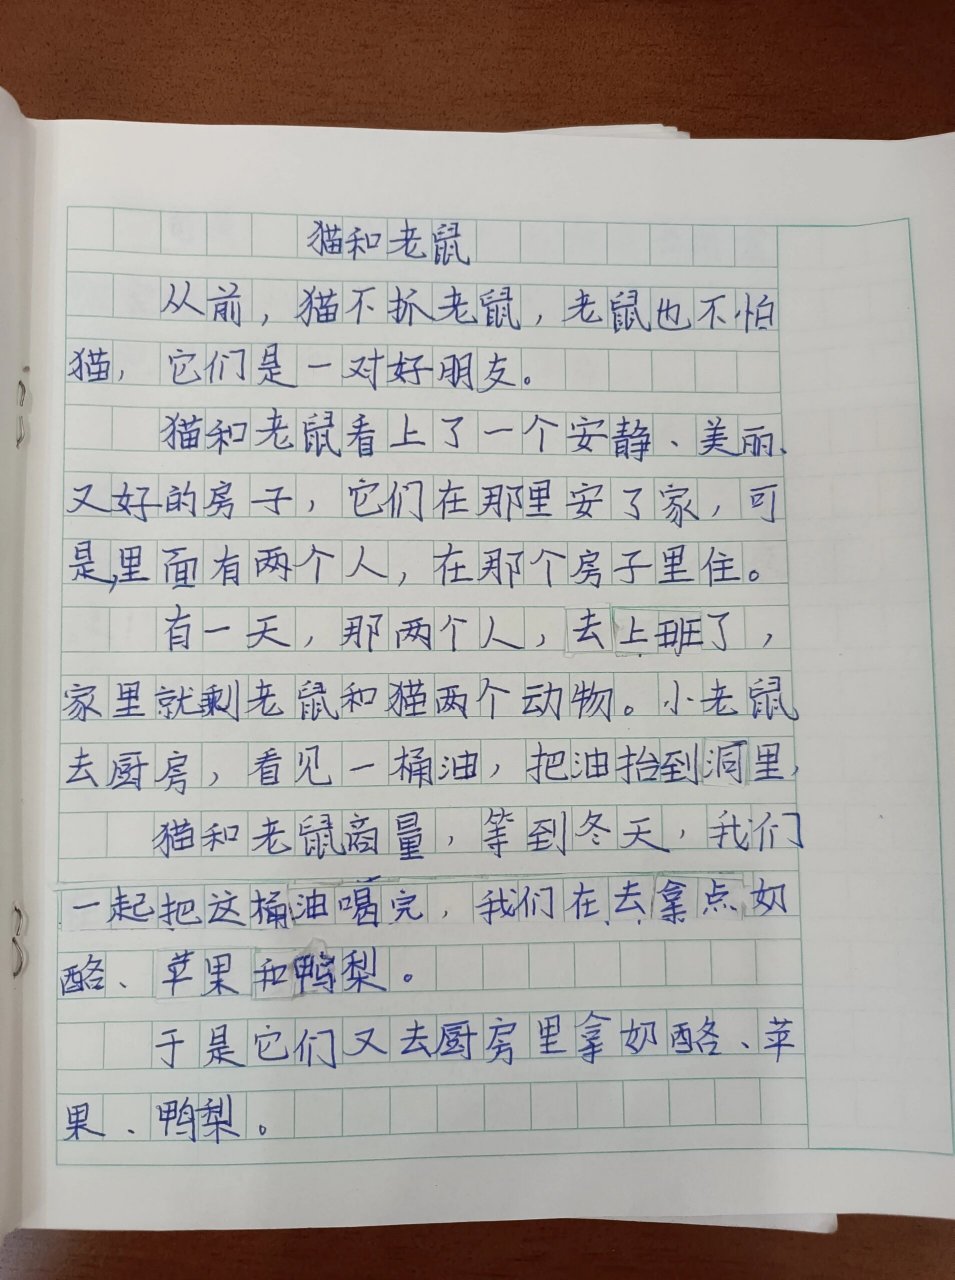 猫和老鼠
从前，猫不抓老鼠，老鼠也不怕
猫，它们是一对好朋友。
猫和老鼠看上了一个安静、美丽、
又好的房子，它们在那里安了家，可
是,里面有两个人，在那个房子里住。
有一天，那两个人，去上班了，
家里就剩老鼠和猫两个动物。小老鼠
去厨房，看见一桶油，把油抬到洞里，
猫和老鼠商量，等到冬天，我们
一起把这桶油喝完，我们在去拿点奶
酪、苹果和鸭梨。
于是它们又去厨房里拿奶酪、苹
果、鸭梨。